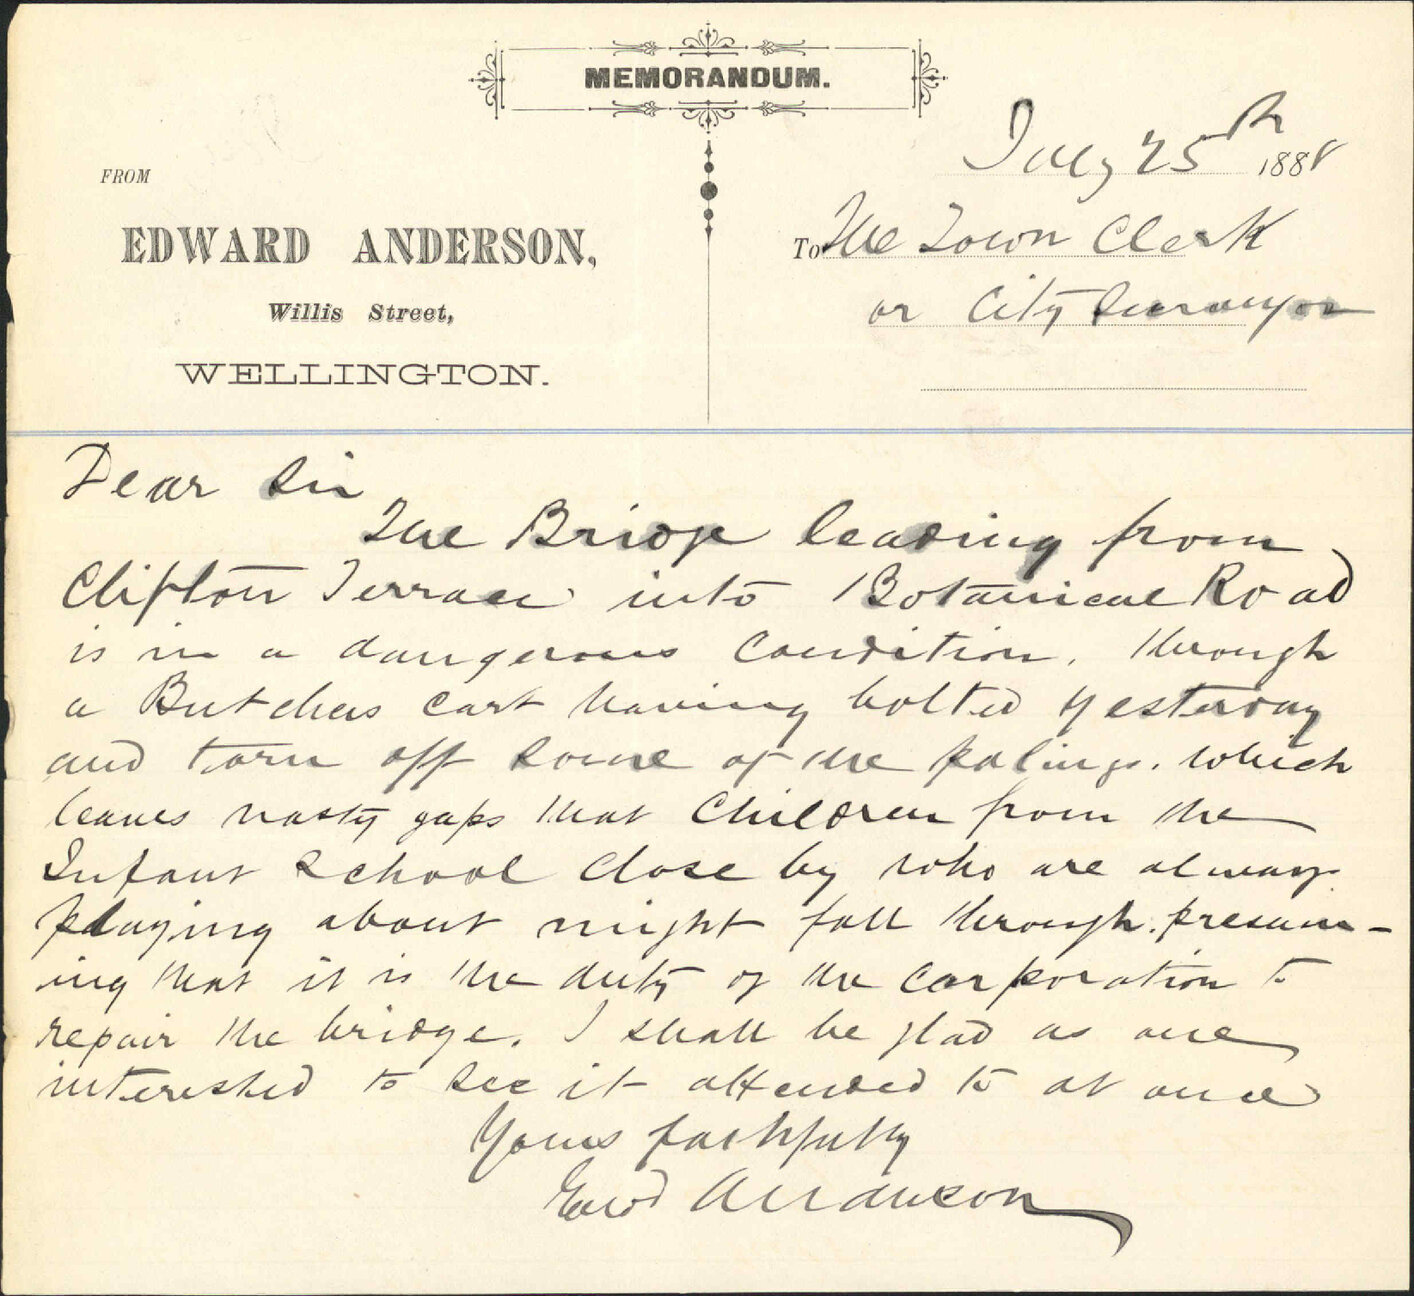 MEMORANDUM.
July 25th 1888
FROM
EDWARD ANDERSON,
Willis Street,
WELLINGTON.
To The Town Clerk
or City Surveyor
Dear Sir
The Bridge leading from
Clifton Terrace into Botanical Road
is in a dangerous condition. through
a Butchers cart having bolted yesterday
and torn off some of the palings. which
leaves nasty gaps that Children from the
Infant School close by who are always
playing about might fall through. presum-
ing that it is the duty of the Corporation to
repair the bridge. I shall be glad as one
interested to see it attended to at once
Yours faithfully
Edwd Anderson